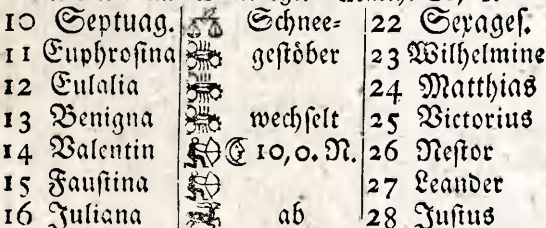 10 Septuag. Schnee= 22 Sexages.
11 Euphroſina geſtöber 23 Wilhelmine
12 Eulalia 24 Matthias
13 Benigna wechſelt 25 Victorius
14 Valentin 10,0. N. 26 Neſtor
15 Fauſtina 27 Leander
16 Juliana ab 28 Juſtus